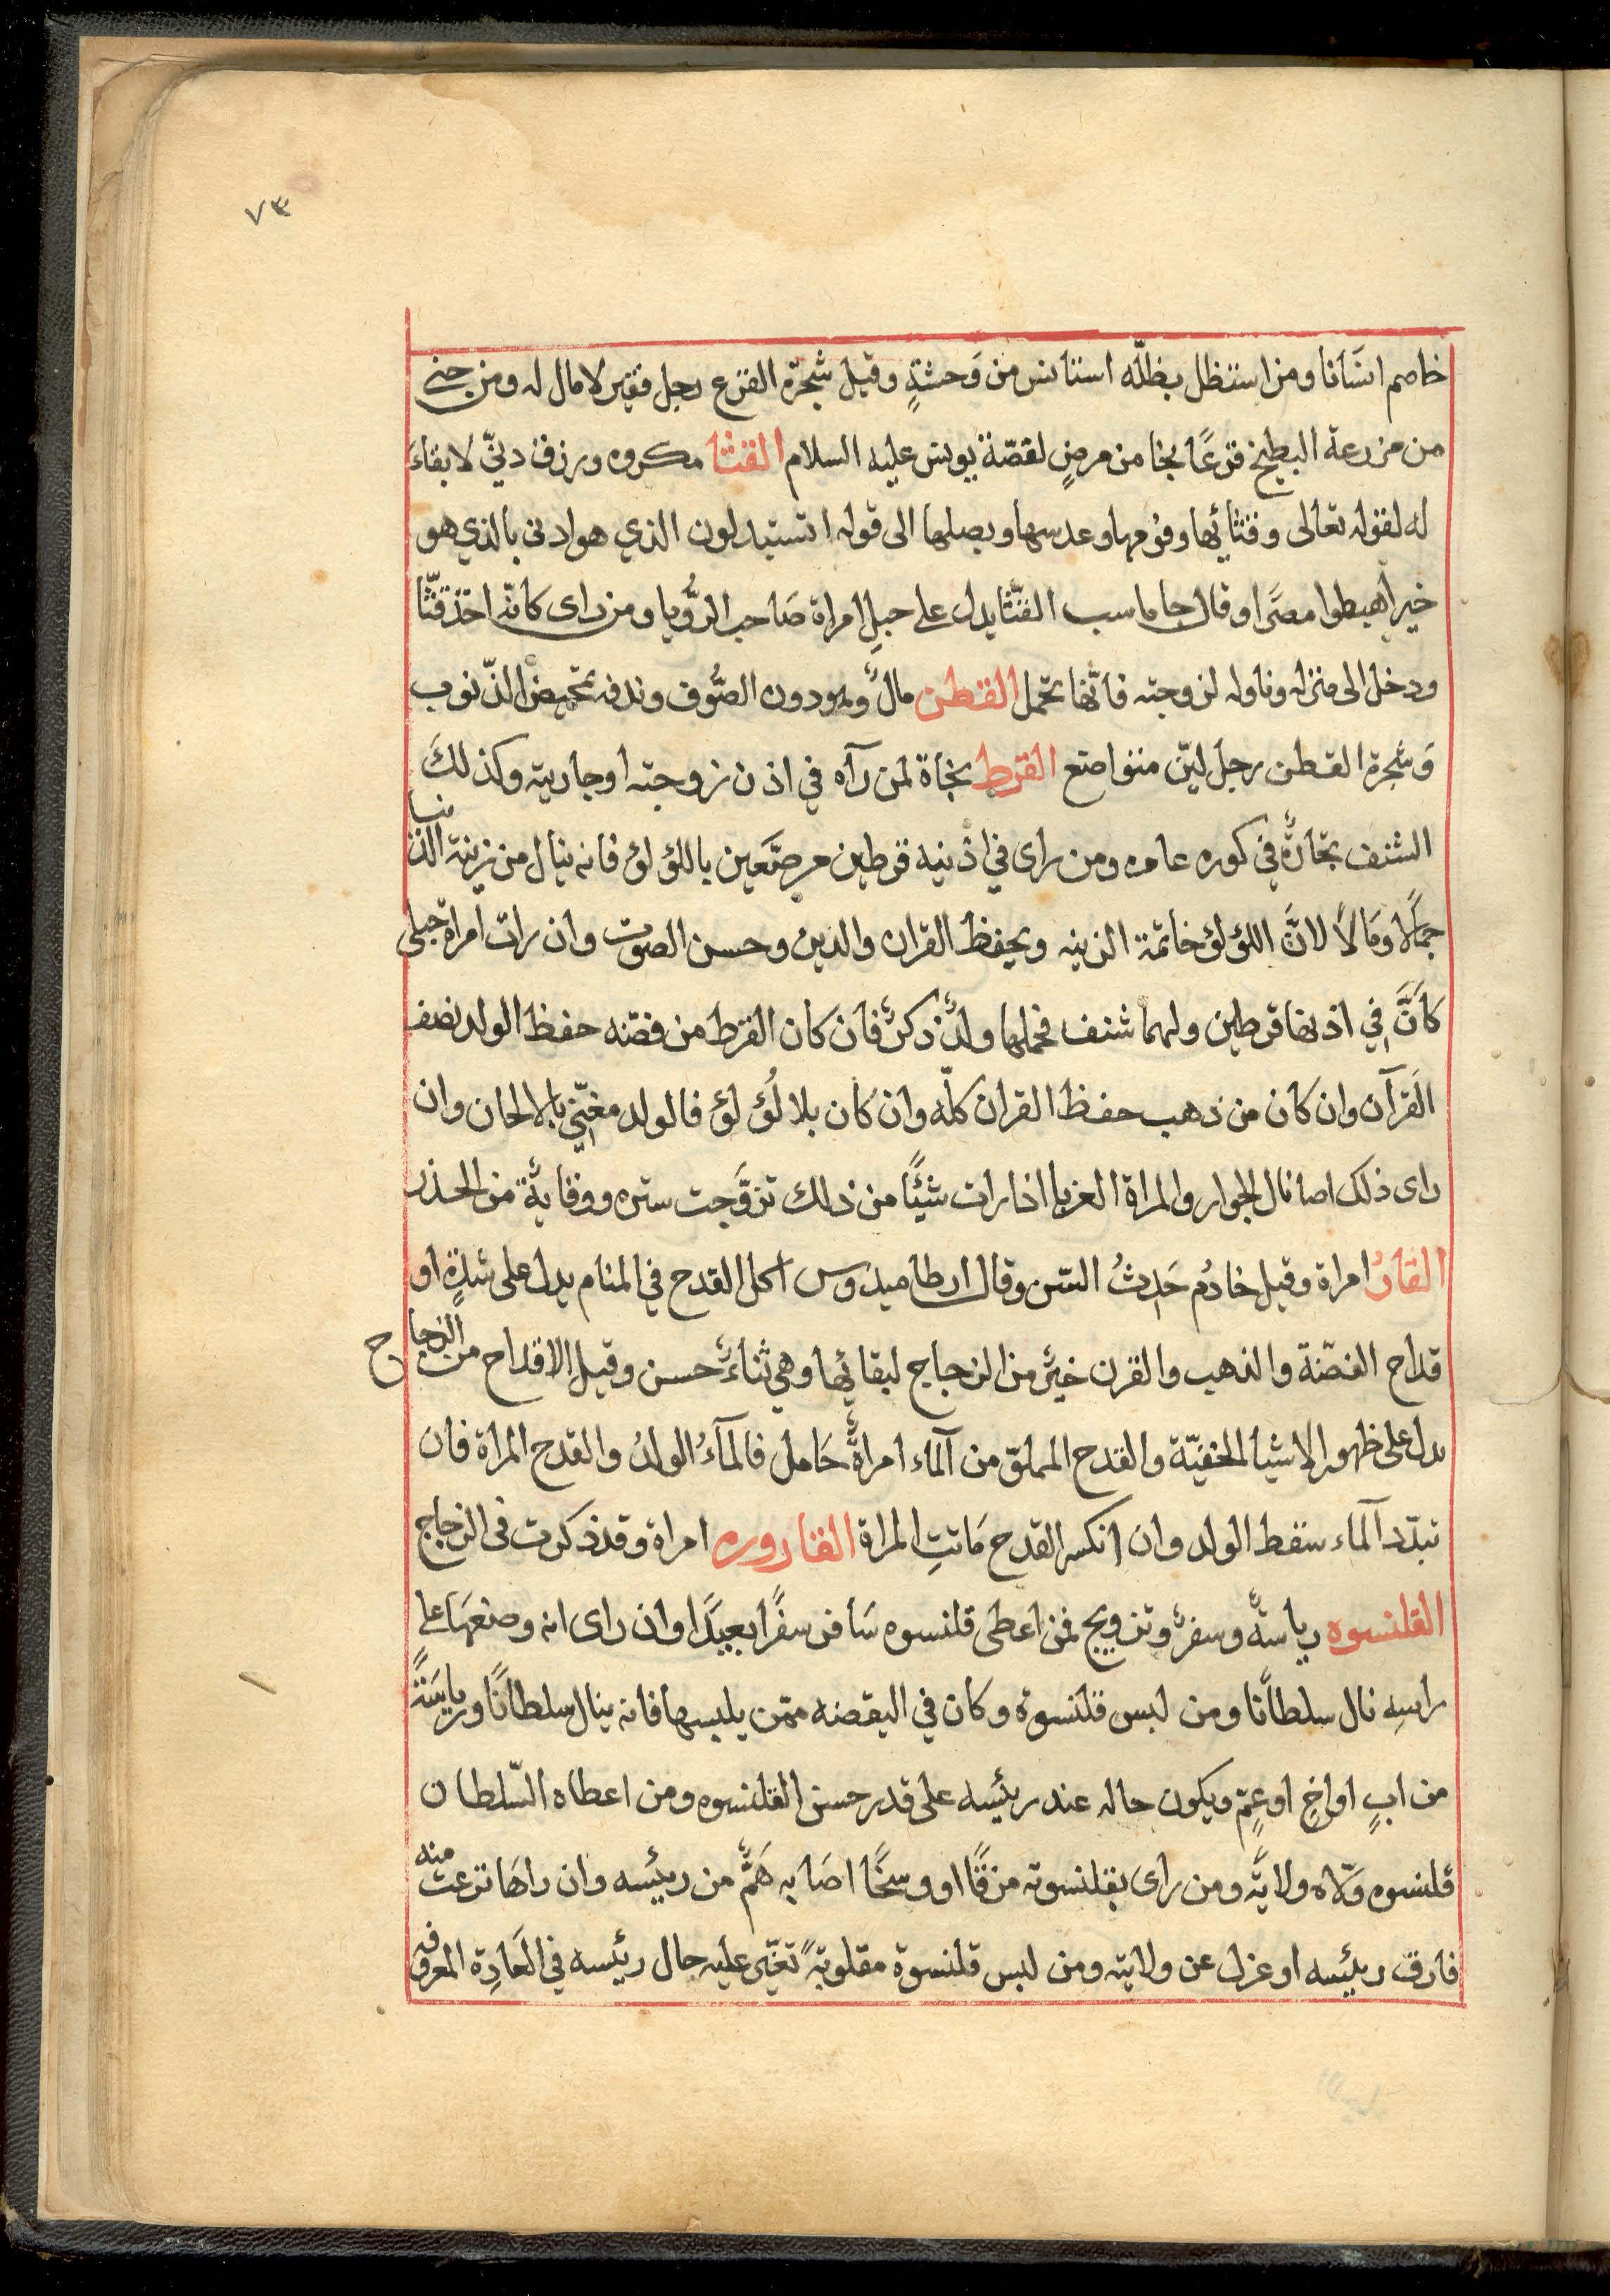 ٧٣
خاصم انسانا ومن استظل بظلّه استانس من وَحشةٍ وقيل شجرة القرع رجل فقير لا مال له ومن جنى
من مزرعة البطيخ قرعًا نجا من مرضٍ لقصّة يونس عليه السلام القثا مكروه ورزق دنيّ لا بقاءَ
له لقوله تعالى وقثائها وفومها وعدسها وبصلها الى قوله اتستبدلون الذي هو ادنى بالذي هو
خير اهبطوا مصرًا وقال جاماسب القثّا يدل على حبلِ امراة صَاحب الرُّويا ومن راى كانّه اخذ قثّا
ودخل الى منزله وناوله لزوجته فانّها تحمل القطن مالٌ وهو دون الصُّوف وندفه تمحيض الذّنوب
وَشجرة القطن رجل ليّن متواضع القرط تجاة لمن رآه في اذن زوجته او جاريته وكذلكَ
الشنف تجارةٌ في كوره عامره ومن راى في اذنيه قرطين مرصّعين باللؤلؤ فانه ينال من زينة الدنيا
جمالًا ومَالًا لانَّ اللؤلؤ خاتمة الزينه ويحفظ القران والدين وحسن الصوت وان رات امراة حبلى
كَانَّ في اذنها قرطين ولهما شنف فحملها ولدٌ ذكرٌ فان كان القرط من فضّه حفظ الولد نصف
القرآن وان كان من ذهب حفظ القران كلّه وان كان بلا لُؤلؤ فالولد مغنّي بالالحان وان
راى ذلك اصا نال الجوار والمراة العزبا اذا رات شيئًا من ذلك تزوَّجت ستره ووقايةٌ من الحذر
القارُ امراة وقيل خادُم حَدِثُ السّن وقال ارطاميدوس اكل القدح في المنام يدل على شدةٍ او
قداح الفضّة والذهب والقرن خيرٌ من الزجاج لبقائها وهي ثناءٌ حسن وقيل الاقداح من الزجاج
يدل على ظهور الاشيا المخفيّة والقدح المملوّ من آلماء امراةٌ حَامل فالمآءُ الولدُ والقدح المراة فان
تبدّد آلماء سقط الولد وان انكسر القدح مَاتتِ المراة القاروره امراة وقد ذكرت في الزجاج
القلنسوه رياسةٌ وسفرٌ وتزويج فمن اعطى قلنسوه سَافر سفرًا بعيدًا وان راى انه وضعهَا على
راسِه نال سلطانًا ومن لبس قلنسوة وكان في اليقضه ممّن يلبسها فانه ينال سلطانًا ورياسَةً
من ابٍ او اخٍ او عمٍّ ويكون حاله عند رئيسه على قدر حسن القلنسوه ومن اعطاه السّلطان
قلنسوه وَلّاه ولايةً ومن راى بقلنسوته مزقًا او وسخًا اصَابه هَمٌّ من رئيسه وان راهَا نزعت منه
فارق رئيسه او عزل عن ولايته ومن لبس قلنسوة مقلوبةً تغيّر عليه حال رئيسه في العَادِة المعروفه